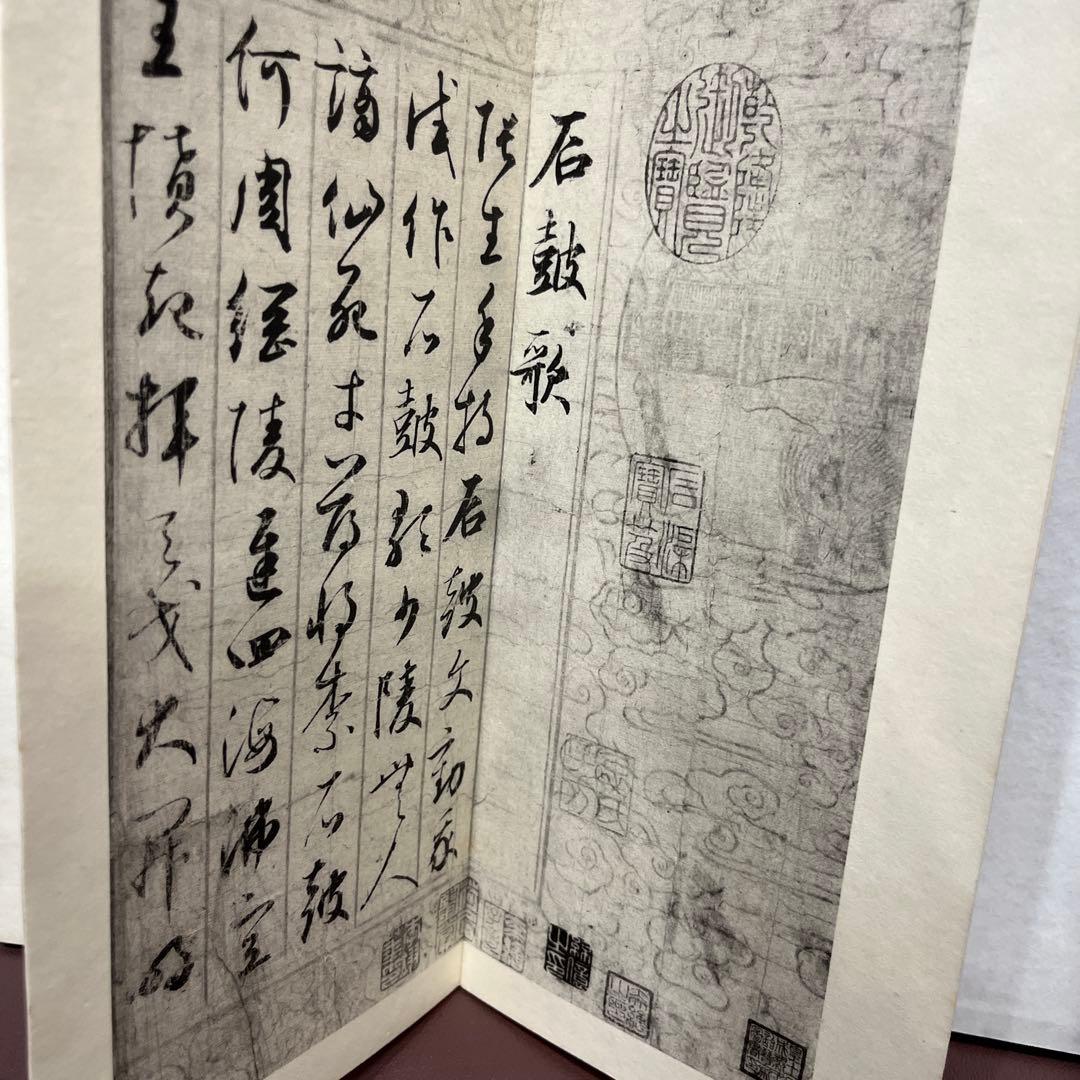 乾隆御覽之寶
石渠寶笈
石鼓歌
張生手持石鼓文勸我
試作石鼓歌少陵無人
謫仙死才薄將柰石鼓
何周綱陵遲四海沸宣
王憤起揮天戈大開明